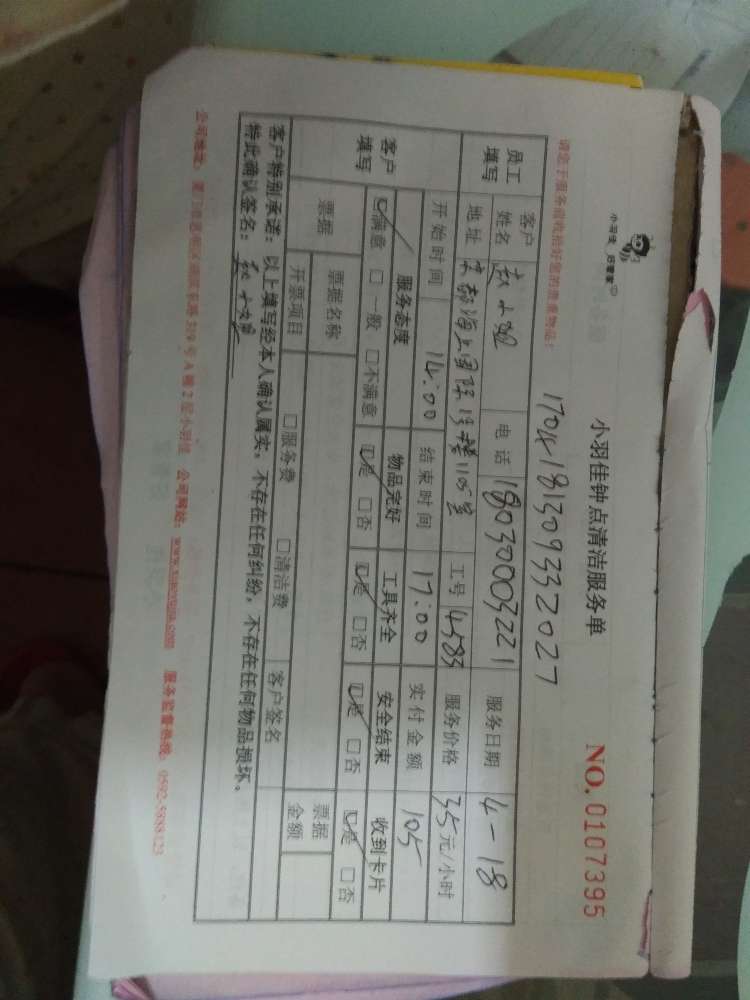 小羽佳 好管家
小羽佳钟点清洁服务单
NO.0107395
1704181309332027
请您于服务前收拾好您的贵重物品！
员工填写 客户姓名 电话 18030003221 服务日期 4-18
地址 海上国际 1105室 工号 4583 服务价格 35元/小时
开始时间 14:00 结束时间 17:00 实付金额 105
客户填写 服务态度 物品完好 工具齐全 安全结束 收到卡片
☑满意 □一般 □不满意 ☑是 □否 ☑是 □否 ☑是 □否 ☑是 □否
票据 票据名称 票据金额
开票项目 □服务费 □清洁费 客户签名
客户特别承诺：以上填写经本人确认属实，不存在任何纠纷，不存在任何物品损坏。
特此确认签名：
公司地址： 319号A幢2层小羽佳 公司网站：www.xiaoyujia.com 服务监督热线：0592-5888123